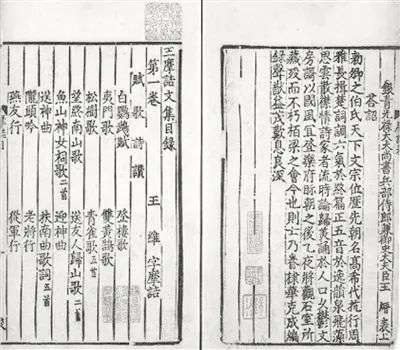 銀青光祿大夫尚書兵部侍郎兼御史大夫臣王 縉 表上
答詔
敕卿之伯氏天下文宗位歷先朝名高希代抗行周
雅長揖楚詞調六氣於終篇正五音於逸韻泉飛藻
思雲散襟情詩家者流時論歸美誦於人口久鬱文
房謌以國風宜登樂府眎朝之後乙夜將觀石室所
藏歿而不朽柏梁之會今也則亡乃眷棣華克成編
錄聲猷益茂歎息良深
王摩詰文集目錄
第一卷 王 維 字摩詰
賦 歌 詩 讚
白鸚鵡賦 登樓歌
夷門歌 雙黃鵠歌
松樹歌 青雀歌五首
望終南山歌 送友人歸山歌二首
魚山神女祠歌二首 迎神曲
送神曲 扶南曲歌詞五首
隴頭吟 老將行
燕支行 從軍行